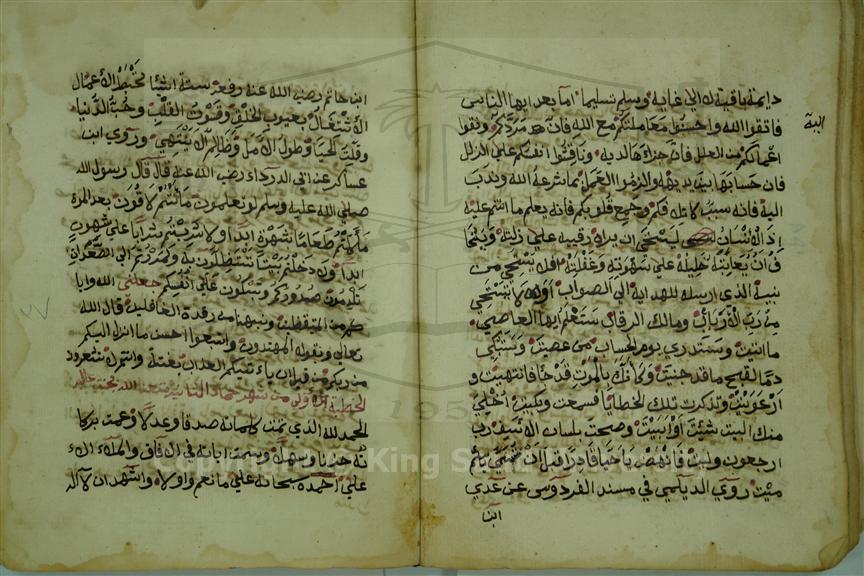 دايمة باقية الي غاية وسلم تسليما اما بعد ايها الناس
فاتقوا الله واحسنوا معاملتكم مع الله فان مردكم ونقوا
اعمالكم من العلل فان الدية وناقشوا انفسكم علي الزلل
فان حسابها بين يديه والزموا العمل بما شرعه الله وندب
اليه فانه سبب لكم وجميع قلوبكم فانه يعلم ما انتم عليه
ان الانسان ليستحي ان يراه رقيبه علي زلته
ان يعاينه خليله علي شهوته وغفلته افلا يستحي من
نبيه الذي ارسله للهداية الي الصواب اولا يستحي
من رب الارباب ومالك الرقاب ستعلم ايها العاصي
ما اتيت وستدري يوم الحساب من عصيت وتبكي
دما لقبح ما قد جنيت وكانك بالموت قد جا فانتهيت و
ارعويت وتذكرت تلك الخطايا فسمعت وبكيت اخلي
منك البيت شيت او ابيت وصحت بلسان الاسف رب
ارجعون وليت فانهض يا حيا قادرا قبل ان تسمي باسم
ميت روي الديلمي في مسند الفردوس عن عدي
ابن
الية
ابن حاتم رضي الله عنه رفعه ستة اشيا تحبط الاعمال
الاشتغال بعيوب الخلق وقسوت القلب وحب الدنيا
وقلت الحيا وطول الامل وظالم لا ينتهي وروي ابن
عساكر عن ابي الدرداء رضي الله عنه قال قال رسول الله
صلي الله عليه وسلم لو تعلمون ما انتم لاقون بعد الموت
ما اكلتم طعاما شهوة ابدا ولا شربتم شرابا علي شهوت
ابدا ولا دخلتم بيتا تستظلون به ولمررتم الي الصعدات
تلدمون صدوركم وتبكون علي انفسكم جعلني الله وايا
كم من المتيقظين ونبهنا من رقدة الغافلين قال الله
تعالي وبقوله المهتدون واتبعوا احسن ما انزل اليكم
من ربكم من قبل ان ياتيكم العذاب بغتة وانتم لا تشعرون
الخطبة الاولي من شهر جماد الثانية
الحمد لله الذي تمت كلماته صدقا وعدلا وعمت بركا
ته حزنا وسهلا وسمت اياته في الافاق والملاء الاء
علي احمده سبحانه علي ما نعم واولا واشهد ان لا اله